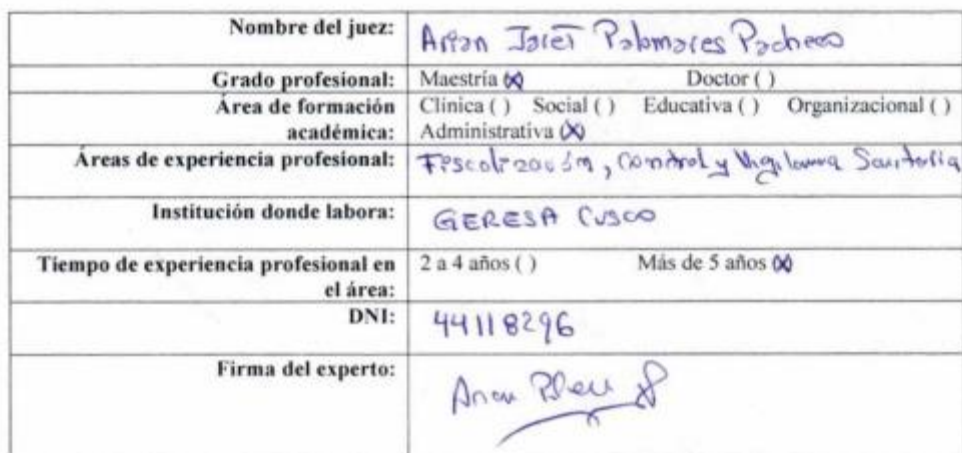 Nombre del juez: Arian Jaret Palomares Pacheco
Grado profesional: Maestría (X) Doctor ( )
Área de formación académica: Clínica ( ) Social ( ) Educativa ( ) Organizacional ( )
Administrativa (X)
Áreas de experiencia profesional: Fiscalización, Control y Vigilancia Sanitaria
Institución donde labora: GERESA CUSCO
Tiempo de experiencia profesional en el área: 2 a 4 años ( ) Más de 5 años (X)
DNI: 44118296
Firma del experto: